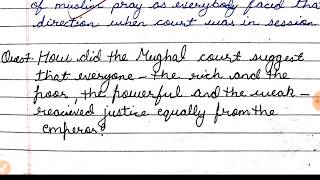 of muslim pray as everybody faced that
direction when court was in session
Quest- How did the Mughal court suggest
that everyone - the rich and the
poor, the powerful and the weak -
reacieved justice equally from the
emperor?